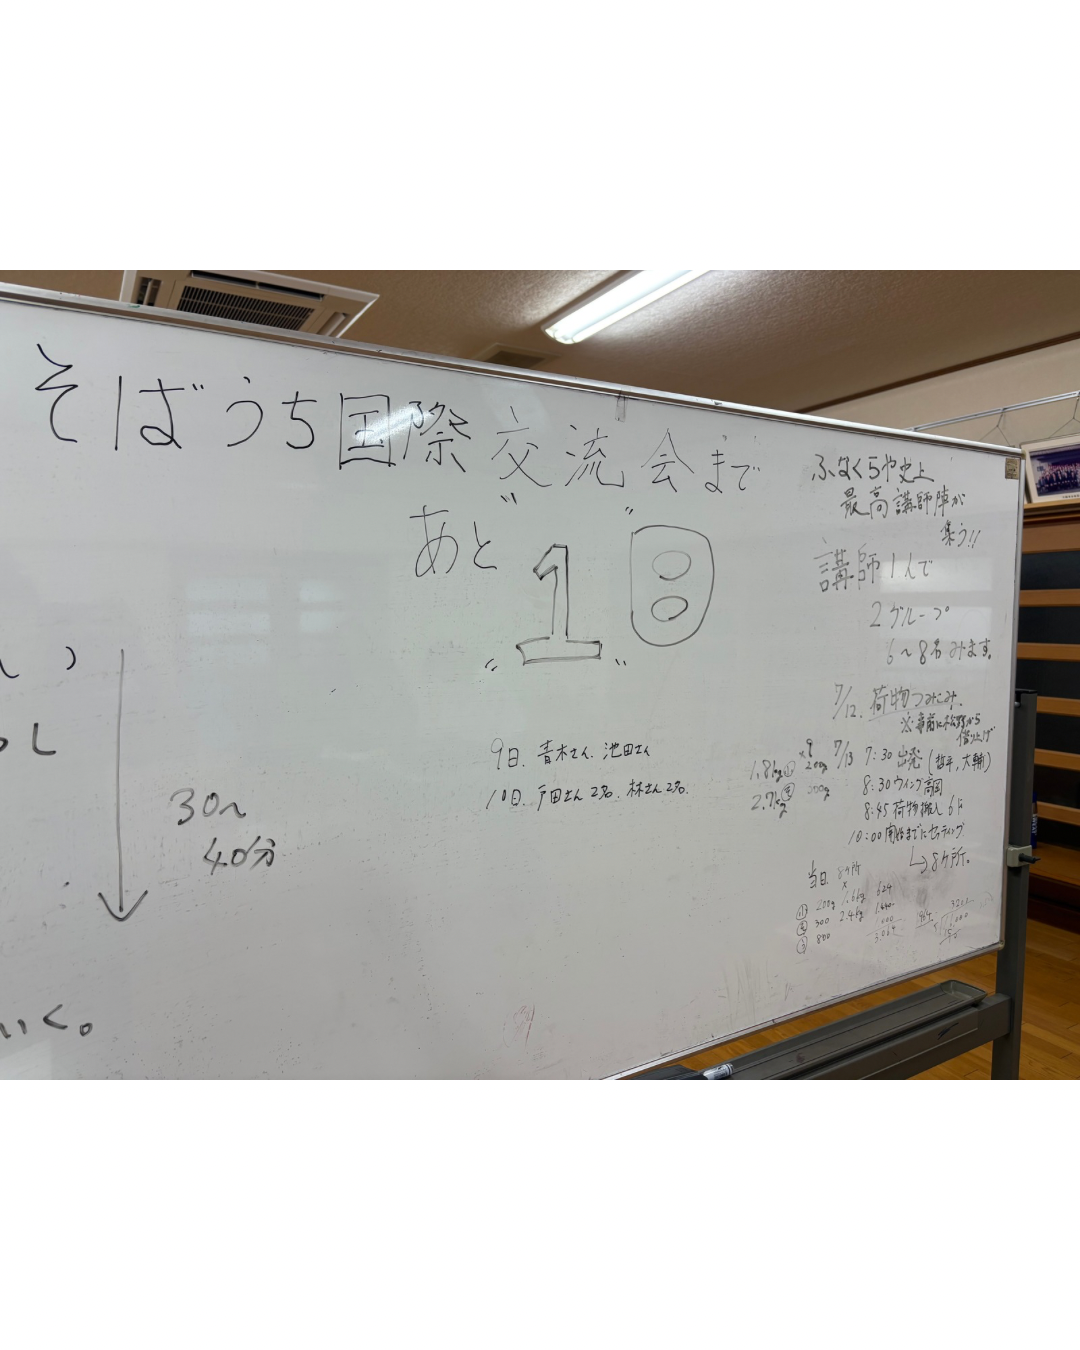 そばうち国際交流会まで
あと
"1日"
ふなくらや史上
最高講師陣が
集う!!
講師1人で
2グループ
6〜8名みます。
7/12. 荷物つみこみ.
※事前に
7/13 7:30 出発 (哲平, 大輔)
8:30 ウイング高岡
8:45 荷物搬入
10:00 開始までにセッティング
↳8ヶ所。
9日. 青木さん. 池田さん
10日. 戸田さん2名. 林さん2名.
1.8kg 200g
2.7kg 300g
30〜
40分
いく。
当日 8ヶ所
200g 1.6kg
300 2.4kg
800